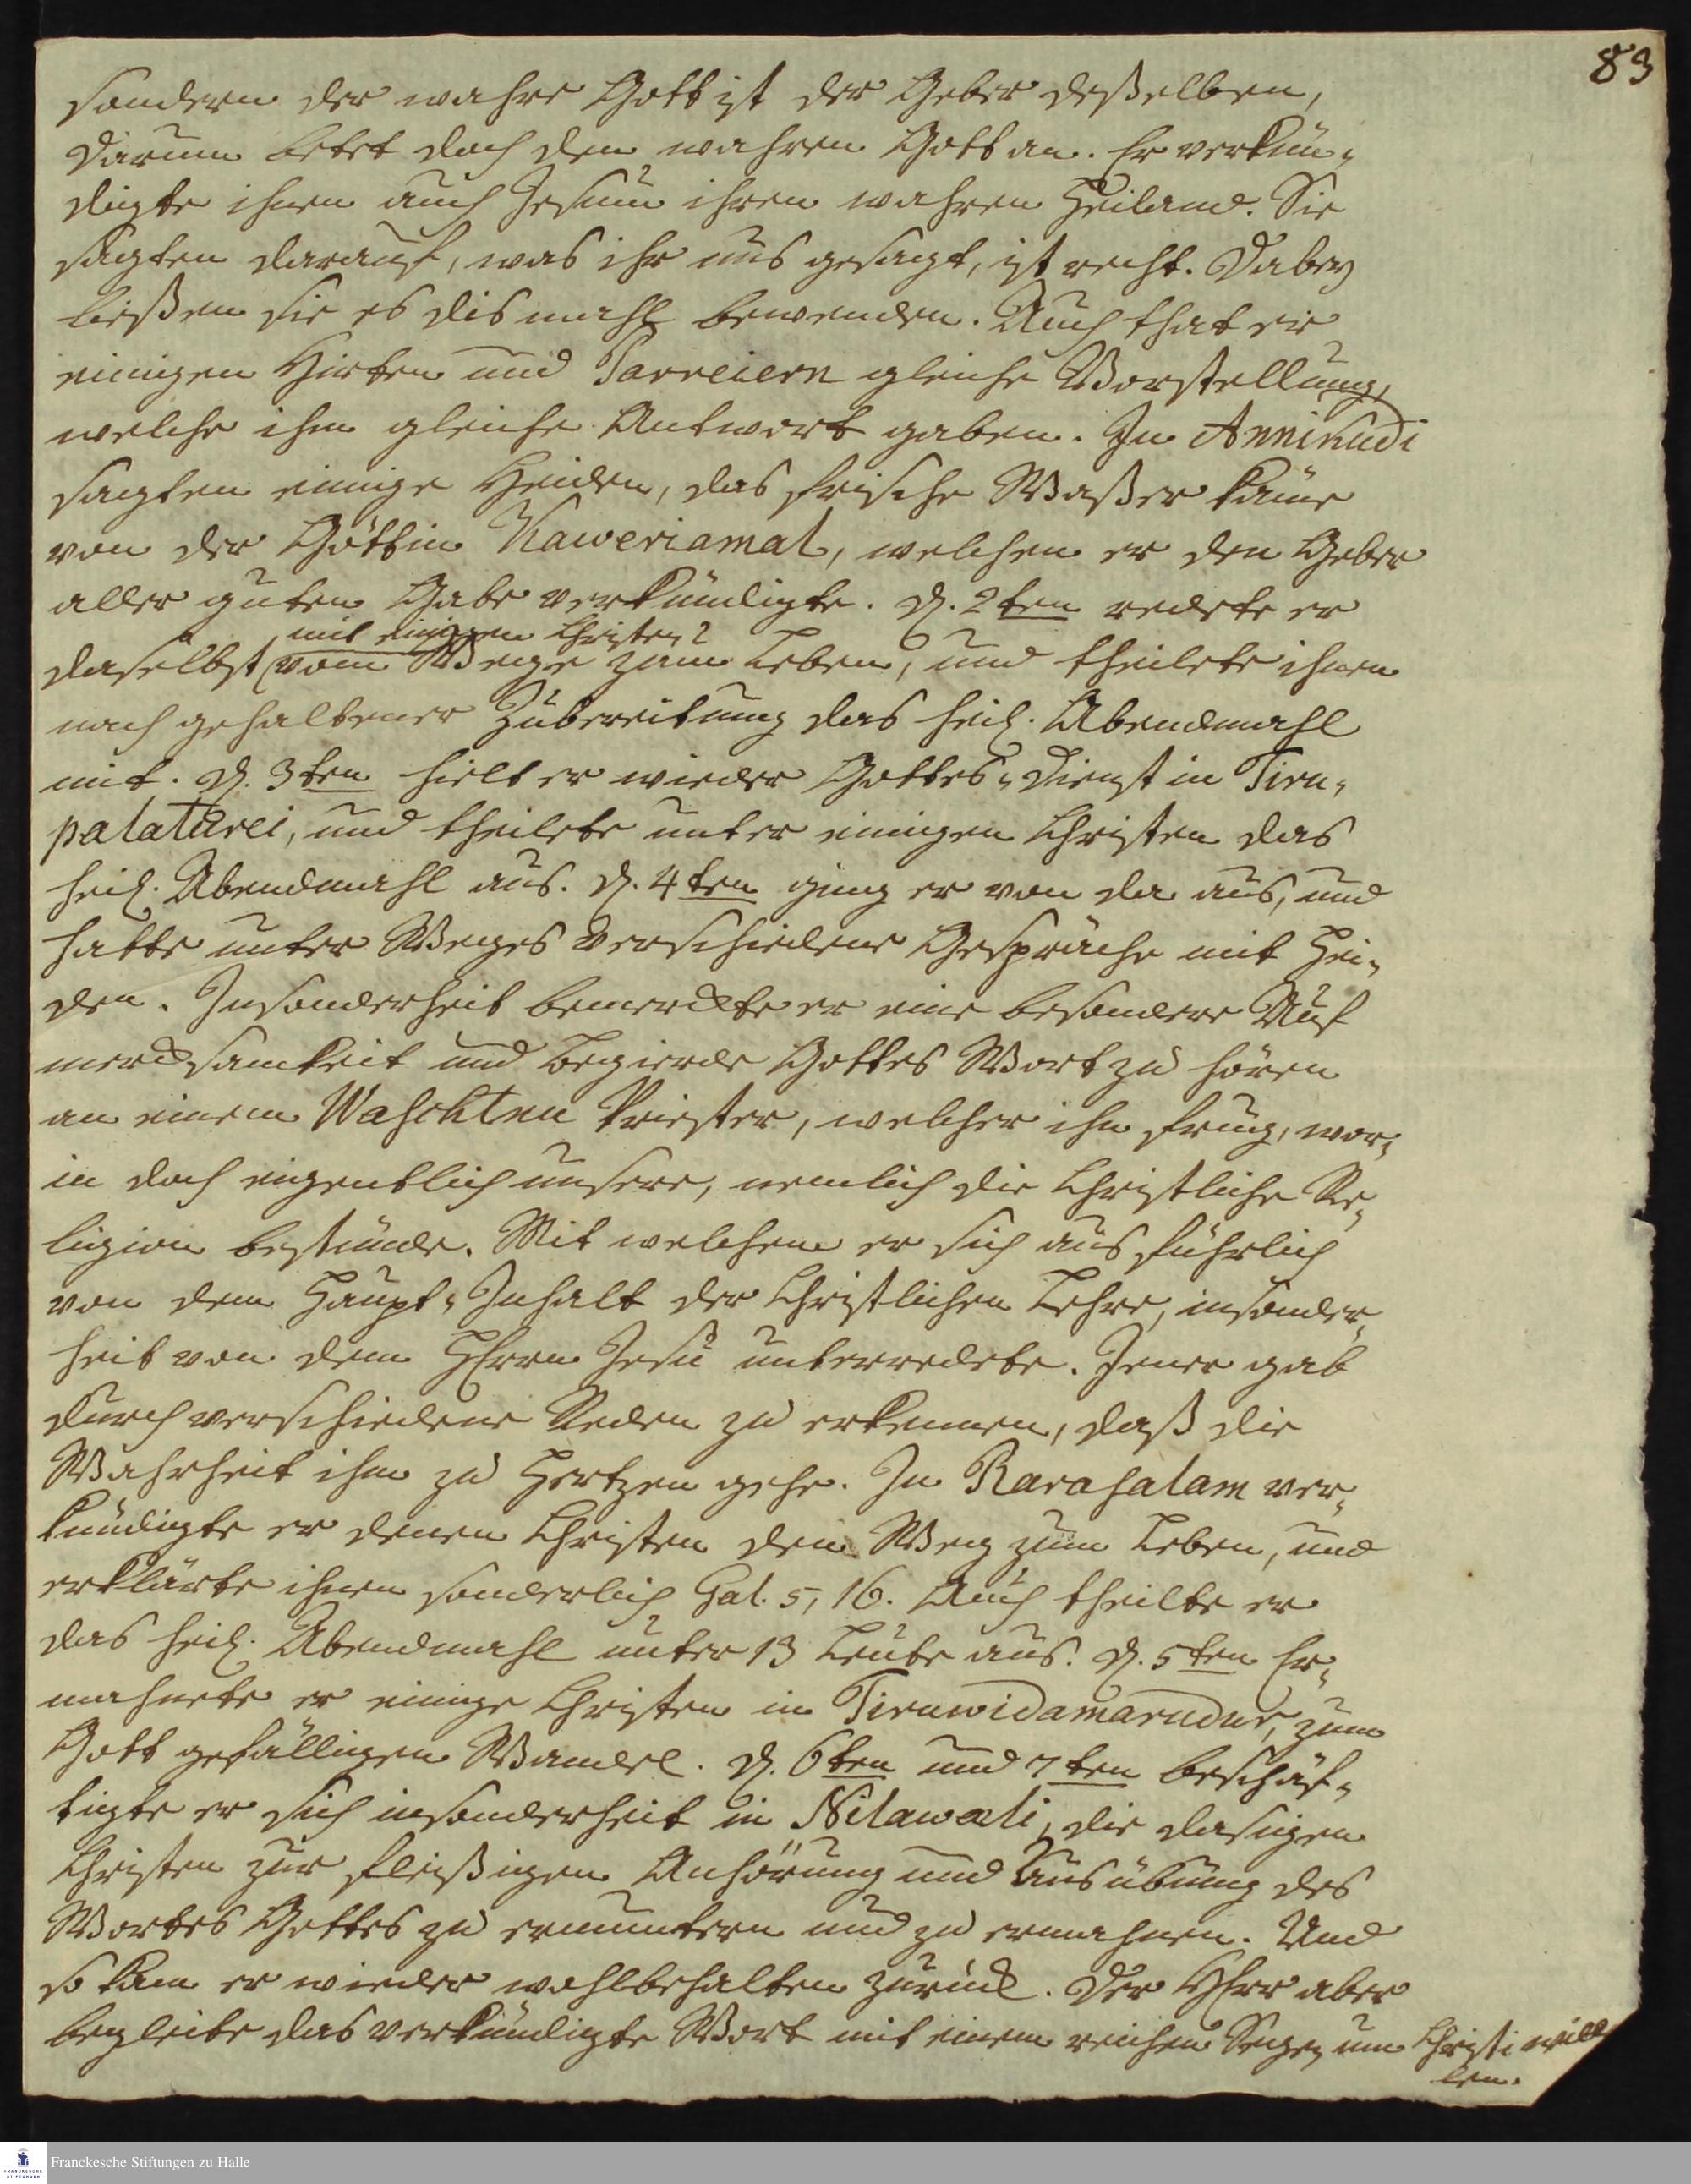 83
sondern der wahre Gott ist der Geber deßelben,
darum betet doch den wahren Gott an. Er verkün-
digte ihnen auch Jesum ihren wahren Heiland. Sie
sagten darauf, was ihr uns gesagt, ist recht. Dabey
ließen sie es dis mahl bewenden. Auch that er
einigen Hirten und Parreiern gleiche Vorstellung,
welche ihm gleiche Antwort gaben. In Annikudi
sagten einige Heiden, das frische Waßer käme
von der Göttin Kaweriamal, welchen er den Geber
aller guten Gabe verkündigte. D. 2ten redete er
mit einigen Christen
daselbst vom Wege zum Leben, und theilete ihnen
nach gehaltener Zubereitung das heil. Abendmahl
mit. D. 3ten hielt er wieder Gottes-Dienst in Tiru-
palaturei, und theilete unter einigen Christen das
heil. Abendmahl aus. D. 4ten ging er von da aus, und
hatte unter Weges verschiedene Gespräche mit Hei-
den. Insonderheit bemerckte er eine besondere Auf
mercksamkeit und Begierde Gottes Wort zu hören
an einem Waschkten Priester, welcher ihn frug, wor-
in doch eigentlich unsere, nemlich die Christliche Re-
ligion bestünde. Mit welchem er sich ausführlich
von dem Haupt-Inhalt der Christlichen Lehre, insonder-
heit von dem HErrn Jesu unterredete. Jener gab
durch verschiedene Reden zu erkennen, daß die
Wahrheit ihm zu Hertzen gehe. In Rarasalam ver-
kündigte er denen Christen den Weg zum Leben, und
erklärte ihnen sonderlich Gal. 5, 16. Auch theilte er
das heil. Abendmahl unter 13 Leute aus. D. 5ten Er-
mahnete er einige Christen in Tiruwidamarudur, zum
Gott gefälligen Wandel. D. 6ten und 7ten beschäf-
tigte er sich insonderheit in Nilaweli, die dasigen
Christen zur fleißigen Anhörung und Ausübung des
Wortes Gottes zu ermuntern und zu ermahnen. Und
so kam er wieder wohlbehalten zurück. Der HErr aber
begleite das verkündigte Wort mit einem reichen Segen um Christi wil
len.
Franckesche Stiftungen zu Halle
FRANCKESCHE STIFTUNGEN